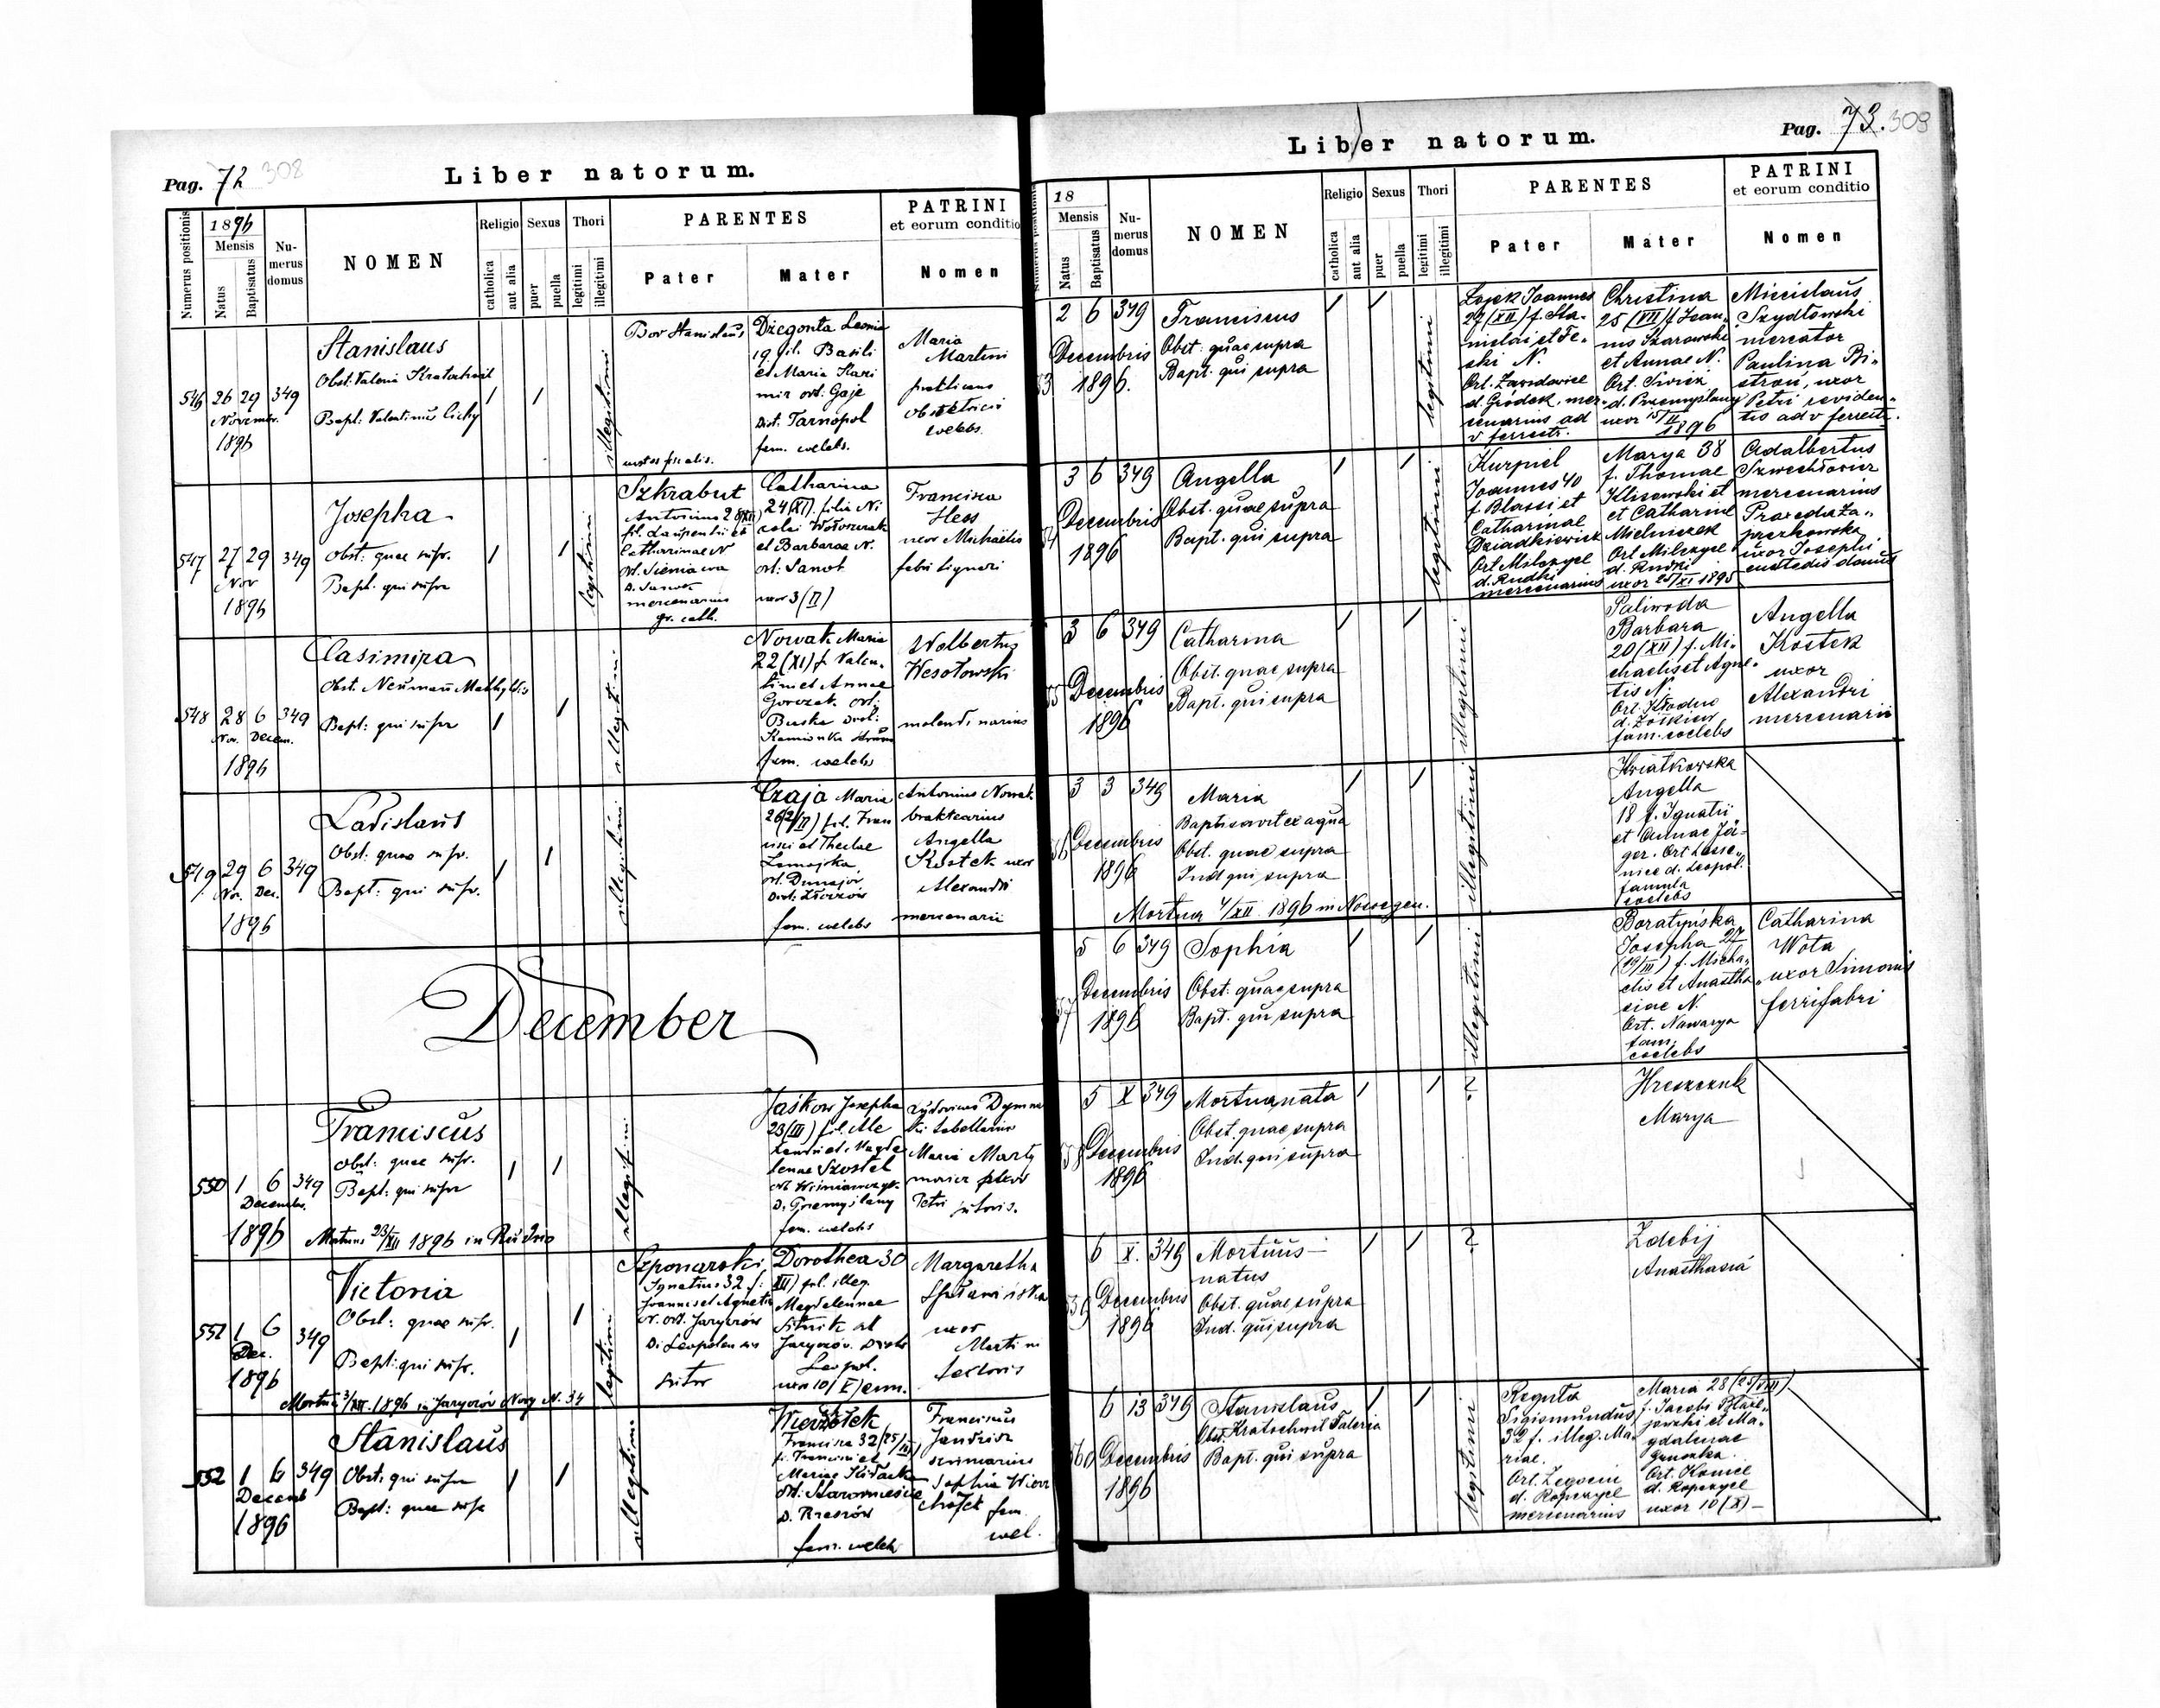 Pag. 72 308
Liber natorum.
Numerus positionis
1896
Mensis
Natus
Baptisatus
Numerus domus
NOMEN
Religio
catholica
aut alia
Sexus
puer
puella
Thori
legitimi
illegitimi
PARENTES
Pater
Mater
PATRINI
et eorum conditio
Nomen
546 26 29 349
Novembr.
1896
Stanislaus
Obst. Valeria Kratochwil
Bapt: Valentinus Cichy
illegitimi
Bor Stanislaus
Dżegonta Leonia
19 fil. Basili
et Maria Kazi
mir ort. Gaje
Dist. Tarnopol
fem. coelebs.
Maria
Martini
obstetricis
coelebs.
547 27 29 349
Nov
1896
Josepha
Obst. quae supr.
Bapt. qui supra
legitimi
Szkrabut
Antonius 28 (XII)
fil. Laurentii et
Catharinae N
ort. Sieniawa
D. Sanok
mercenarius
gr. cath.
Catharina
24 (XI). filia Ni
colai Wołoszczak
et Barbarae N.
ort: Sanok
uxor 3 (II)
Francisca
Hess
uxor Michaelis
fabri lignari
548 28 6 349
Nov. Decem.
1896
Casimira
Obst. Neumann Mathyldis
Bapt: qui supra
illegitimi
Nowak Maria
22 (XI) f. Valen.
tini et Annae
Gorczak. ort:
Buska Dist:
Kamionka Strum
fem. coelebs
Wolbertus
Wesołowski
molendinarius
549 29 6 349
Nov. Dec.
1896
Ladislaus
Obst: quae supr.
Bapt: qui supr.
illegitimi
Czaja Maria
26 (2/II) fil. Fran
cisci et Theclae
ort. Dunajów
Dist. Złoczów
fem. coelebs
Antonius Nowak
Angella
Kostek uxor
Alexandri
mercenarii
December
550 1 6 349
December.
1896
Franciscus
Obst: quae supr.
Bapt: qui supra
Mortuus 23/XII 1896 in
illegitimi
Jaśkow Josepha
23 (III) fil. Ale
xandri et. Magda
lenae Szostek
D. Przemyślany
fem. coelebs
Maria
Petri sutoris.
551 1 6 349
Dec.
1896
Victoria
Obst: quae supr.
Bapt: qui supr.
Mortua 3/XII. 1896 in Jaryczów Nowy N. 34
legitimi
Szponarski
Ignatius 32 f:
Joannis et Agnetis
N. ort. Jaryczów
D. Leopolensis
sutor
Dorothea 30
XII) fil. illeg.
Magdalenae
Sitnik ort
Jaryczów. Distr
Leopol.
uxor 10 (X) ann.
Margaretha
uxor
Martini
sectoris
552 1 6 349
Decemb
1896
Stanislaus
Obst: qui supra
Bapt: quae supr
illegitimi
Francisca 32 (25/III)
f. Francisci et
Mariae
ort: Staromieście
D. Rzeszów
fem. coelebs
Franciscus
Sophia Wierz
chołek fem.
coel.
Liber natorum.
Pag. 73. 309
Numerus positionis
18
Mensis
Natus
Baptisatus
Numerus domus
NOMEN
Religio
catholica
aut alia
Sexus
puer
puella
Thori
legitimi
illegitimi
PARENTES
Pater
Mater
PATRINI
et eorum conditio
Nomen
53 2 6 349
Decembris
1896.
Franciscus
Obst: quae supra
Bapt. qui supra
legitimi
Łojek Joannes
27 (XII) f. Sta-
nislai et Fe-
ski N.
Ort. Zawidowice
d. Gródek, mer-
cenarius ad
v ferrestr.
Christina
25 (VII) f. Joan-
nis Szarowski
et Annae N.
Ort. Świrz
d. Przemyślany
uxor 15/II
1896
Miecislaus
Szydłowski
mercator
Paulina Bi-
stroń, uxor
Petri reviden-
tis ad v ferrestr.
54 3 6 349
Decembris
1896
Angella
Obst. quae supra
Bapt. qui supra
legitimi
Kurpiel
Joannes 40
f. Blassi et
Catharinae
Dziadkiewicz
Ort Milczyce
d. Rudki
mercenarius
Marya 38
f. Thomae
Klisowski et
et Catharinae
Mielniczek
Ort Milczyce
d. Rudki
uxor 25/XI 1895
Adalbertus
mercenarius
Praxeda Za-
jączkowska
uxor Josephi
custodis domus
55 3 6 349
Decembris
1896
Catharina
Obst. quae supra
Bapt. qui supra
illegitimi
Paliwoda
Barbara
20 (XII) f. Mi-
chaelis et Agne-
tis N.
Ort. Kłodno
d. Żółkiew
fam. coelebs
Angella
Kostek
uxor
Alexandri
mercenarii
56 3 3 349
Decembris
1896
Maria
Baptisavit ex aqua
Obst. quae supra
Ind qui supra
Mortua 4/XII 1896 in Nosocom.
illegitimi
Kwiatkowska
Angella
18 f. Ignatii
et Annae Jä-
ger. Ort Lesie-
nice d. Leopol.
famula
coelebs
57 5 6 349
Decembris
1896
Sophia
Obst: quae supra
Bapt. qui supra
illegitimi
Boratyńska
Josepha 27
(19/III) f. Micha-
elis et Anastha-
siae N.
Ort. Nawarya
fam.
coelebs
Catharina
Wota
uxor Simonis
ferrifabri
58 5 X 349
Decembris
1896
Mortua nata
Obst. quae supra
Ind. qui supra
?
Hreszczuk
Marya
59 6 X. 349
Decembris
1896
Mortuus-
natus
Obst. quae supra
Ind. qui supra
?
Zdebij
Anasthasia
60 6 13 349
Decembris
1896
Stanislaus
Obst. Kratochwil Valeria
Bapt. qui supra
legitimi
Reguta
Sigismundus
32 f. illeg. Ma-
riae.
Ort. Zegocin
d. Ropczyce
mercenarius
Maria 28 (25/VIII)
f. Jacobi Błaże-
jowski et Ma-
gdalenae
Ort. Konice
d. Ropczyce
uxor 10 (X) -